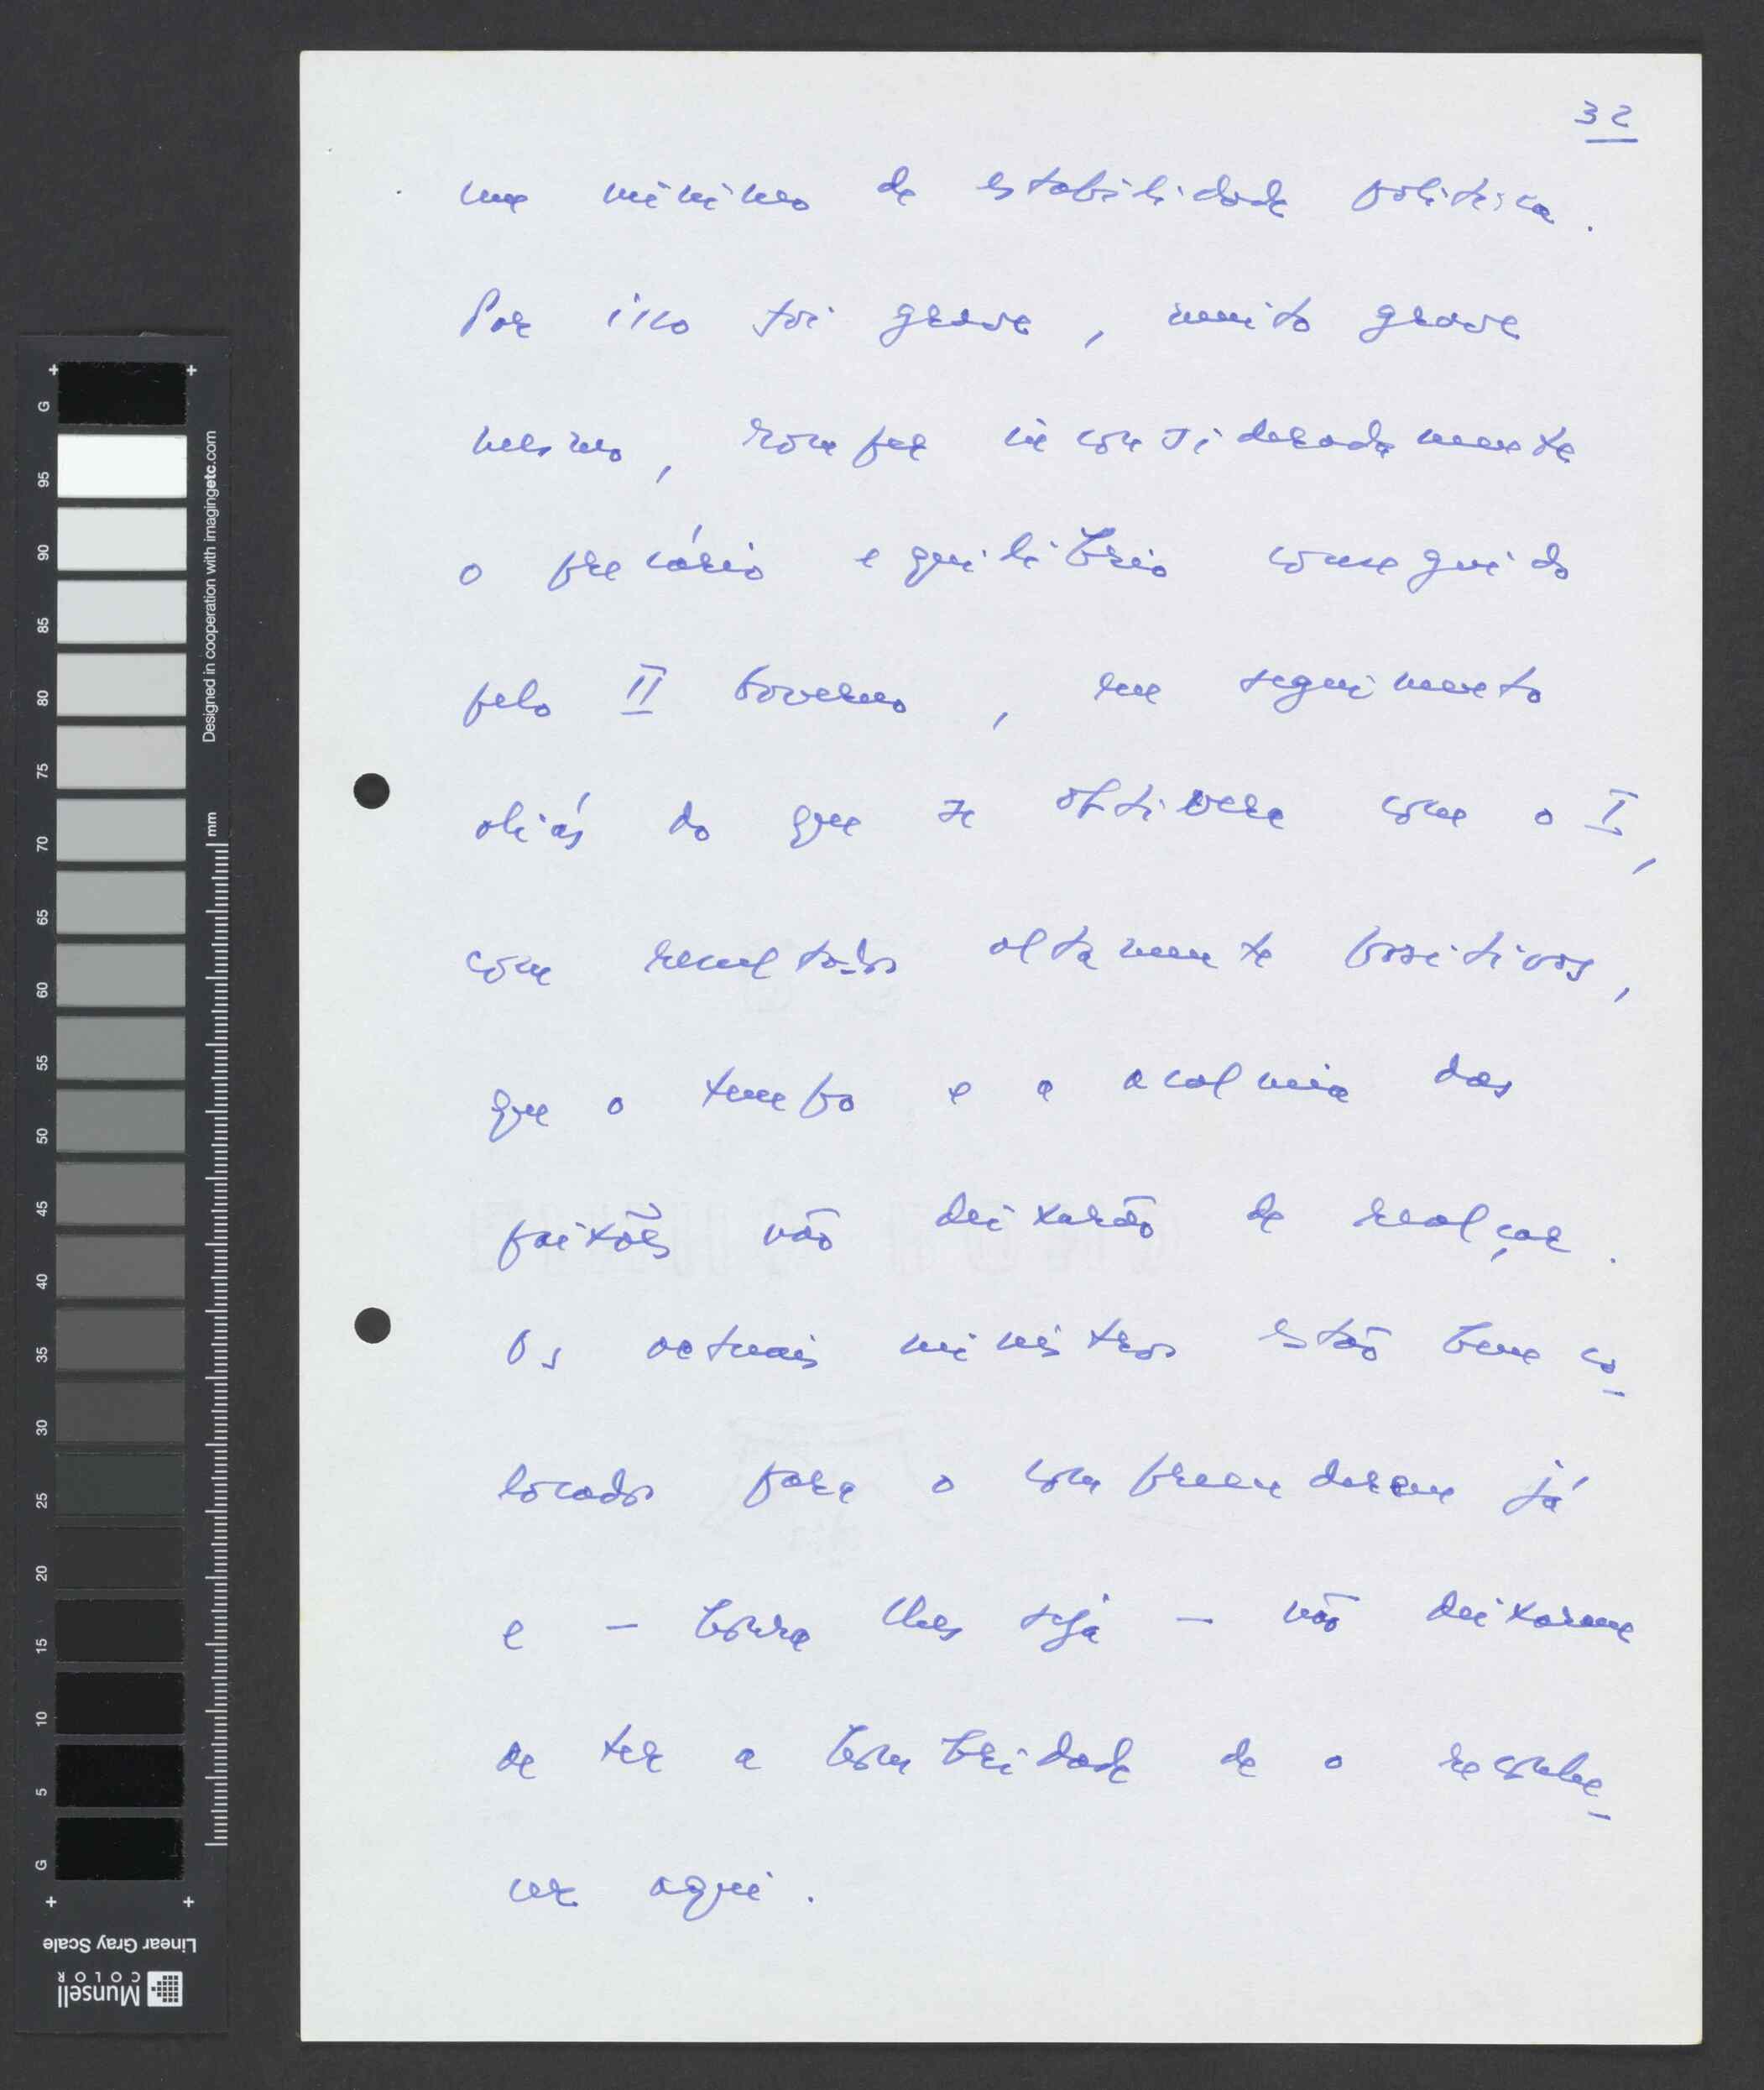 32
um mínimo de estabilidade política.
Por isso foi grave, muito grave
mesmo, romper inconsideradamente
o precário equilíbrio conseguido
pelo II Governo, em seguimento
aliás do que se obtivera com o I,
com resultados altamente positivos,
que o tempo e a acalmia das
paixões não deixarão de realçar.
Os actuais ministros estão bem co-
locados para o compreenderem já
e - honra lhes seja - não deixaram
de ter a hombridade de o reconhe-
cer aqui.
G
95
90
85
80
75
70
65
60
55
50
45
40
35
30
25
20
15
10
5
G
Designed in cooperation with imagingetc.com
mm
Linear Gray Scale
Munsell
COLOR